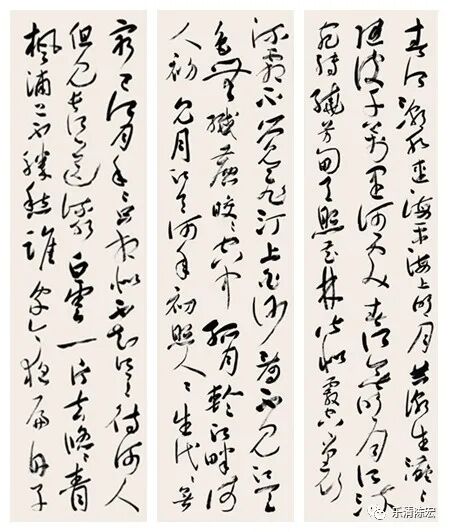 春江潮水连海平海上明月共潮生滟滟
随波千万里何处春江无月明江流
宛转绕芳甸月照花林皆似霰空里
流霜不觉飞汀上白沙看不见江天
一色无纤尘皎皎空中孤月轮江畔何
人初见月江月何年初照人人生代代无
穷已江月年年只相似不知江月待何人
但见长江送流水白云一片去悠悠青
枫浦上不胜愁谁家今夜扁舟子
乐清陈宏